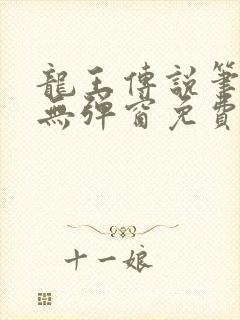 龍王傳說筆
無彈窗免費
十一娘